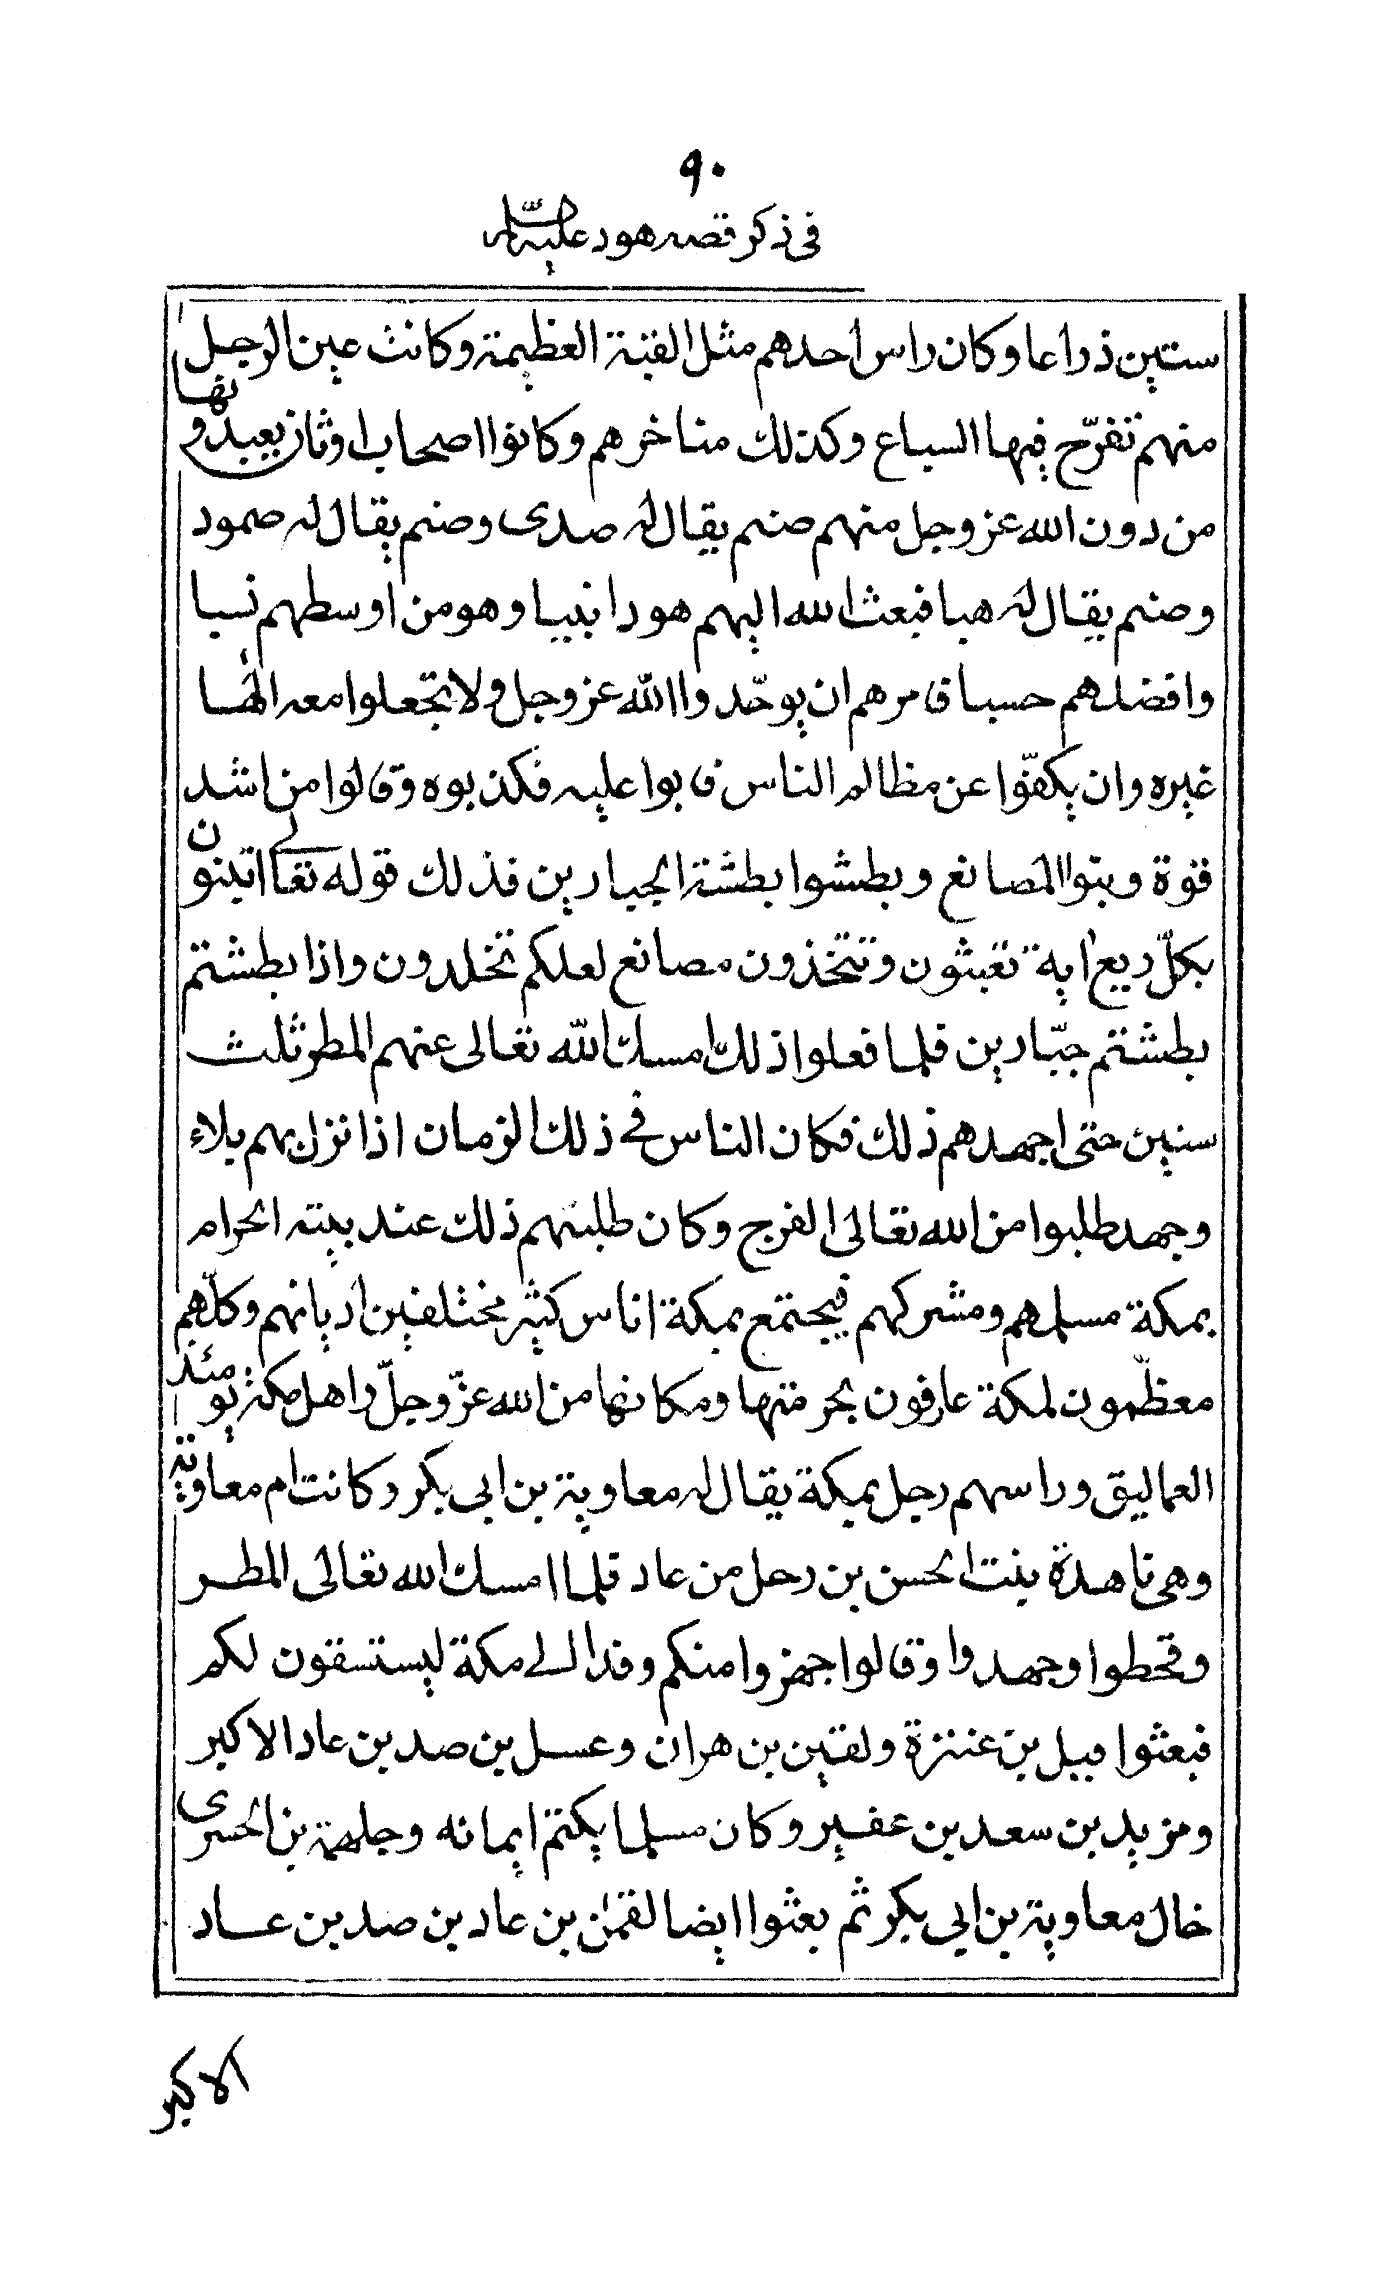 ٩٠
في ذكر قصه هود عليه السلام
ستين ذراعا وكان راس احدهم مثل القبة العظيمة وكانت عين الرجل
منهم تفرّح فيها السباع وكذلك مناخرهم وكانوا اصحاب اوثان يعبدونها
من دون الله عز وجل منهم صنم يقال له صدى وصنم يقال له صمود
وصنم يقال له هبا فبعث الله اليهم هودا نبيا وهو من اوسطهم نسبا
وافضلهم حسبا فامرهم ان يوحّدوا الله عز وجل ولا يجعلوا معه الها
غيره وان يكفّوا عن مظالم الناس فابوا عليه فكذبوه وقالوا من اشد
قوة وبنوا المصانع وبطشوا بطشة الجبارين فذلك قوله تعالى اتبنون
بكلّ ريع اية تعبثون وتتخذون مصانع لعلكم تخلدون واذا بطشتم
بطشتم جبّارين فلما فعلوا ذلك امسك الله تعالى عنهم المطر ثلث
سنين حتى اجهدهم ذلك فكان الناس في ذلك الزمان اذا نزل بهم بلاء
وجهد طلبوا من الله تعالى الفرج وكان طلبتهم ذلك عند بيته الحرام
بمكة مسلمهم ومشركهم فيجتمع بمكة اناس كثير مختلفين اديانهم وكلّهم
معظّمون لمكة عارفون بحرمتها ومكانها من الله عزّ وجلّ واهل مكة يومئذ
العماليق وراسهم رجل بمكة يقال له معاوية بن ابي بكر وكانت ام معاوية
وهي ناهدة بنت الحسن بن رحل من عاد فلما امسك الله تعالى المطر
وقحطوا وجهدوا وقالوا جهزوا منكم وفدا الى مكة ليستسقون لكم
فبعثوا قيل بن عنزة ولقين بن هران وعسل بن صد بن عاد الاكبر
ومزيد بن سعد بن عفير وكان مسلما يكتم ايمانه وجلهمة بن الحسرى
خال معاوية بن ابي بكر ثم بعثوا ايضا لقمن بن عاد بن صد بن عاد
الاكبر